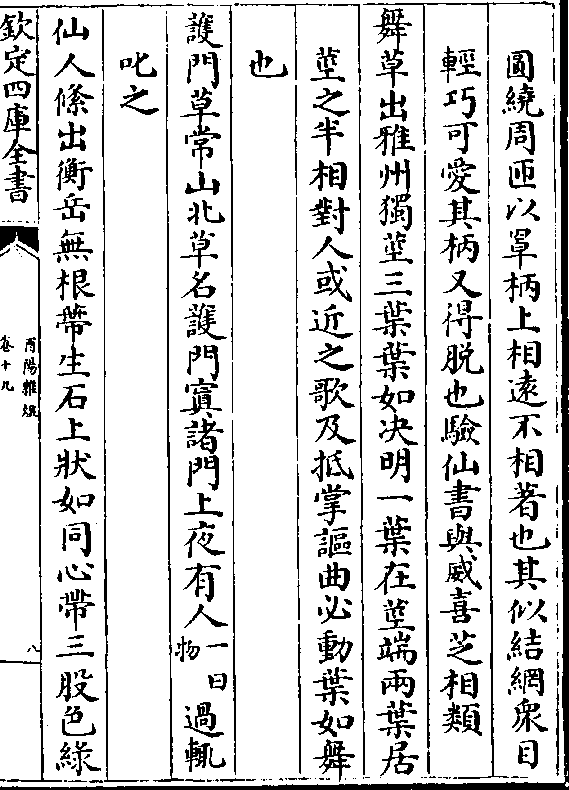 圓繞周匝以罩柄上相逺不相著也其似結網衆目
輕巧可愛其柄又得脱也驗仙書與威喜芝相類
舞草出雅州獨莖三葉葉如决明一葉在莖端兩葉居
莖之半相對人或近之歌及抵掌謳曲必動葉如舞
也
䕶門草常山北草名䕶門寘諸門上夜有人一曰物過輒
叱之
仙人絛出衡岳無根蔕生石上狀如同心帶三股色緑
欽定四庫全書
酉陽雜俎
卷十九
八